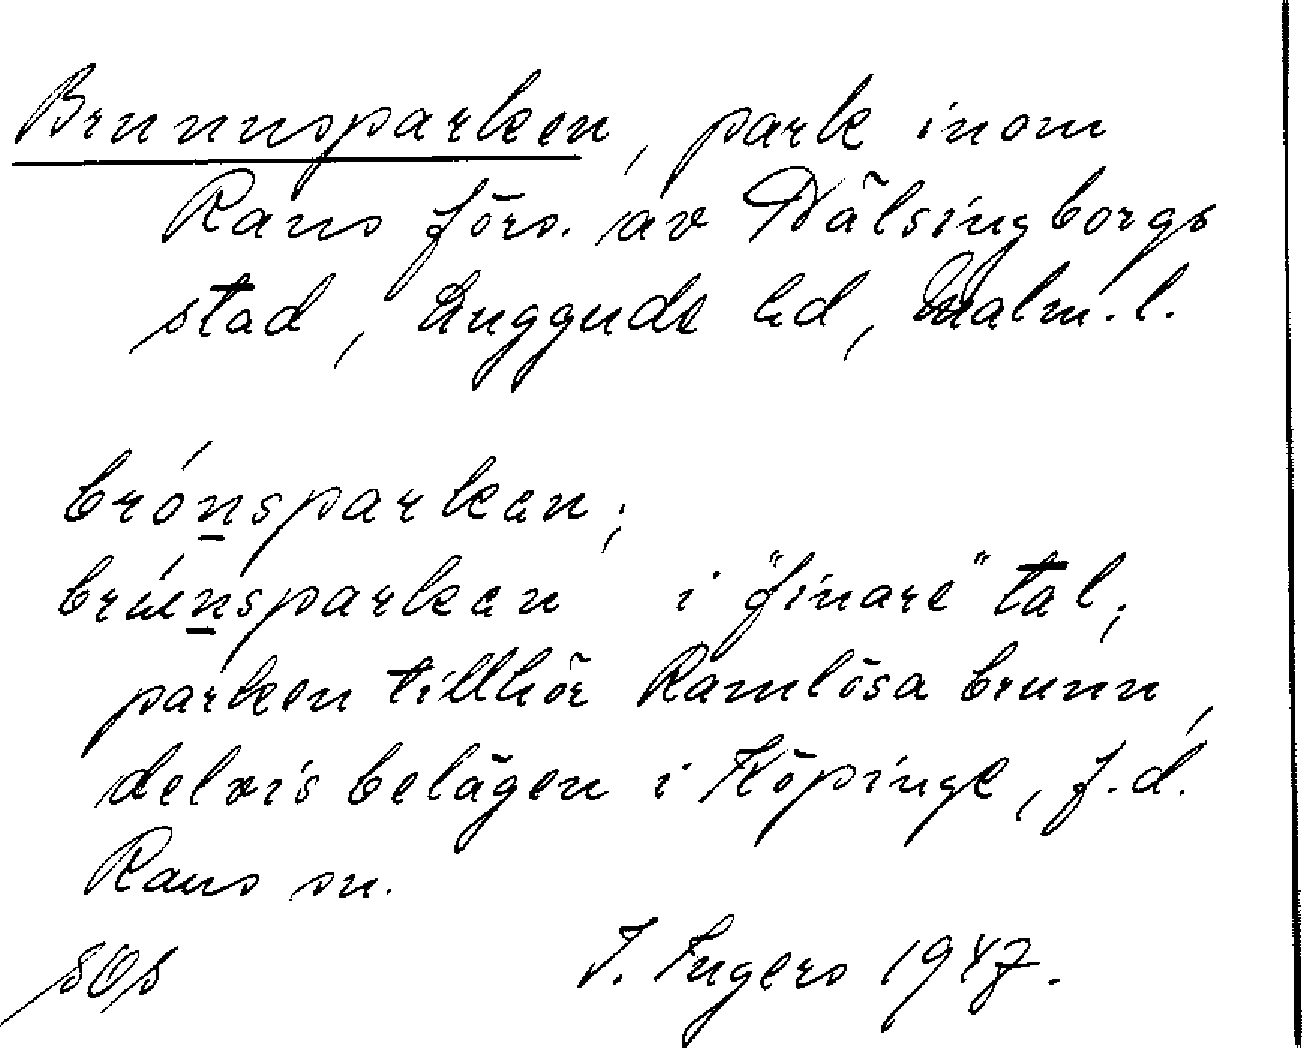 Brunnsparken, park inom
Raus förs. av Hälsingborgs
stad, Luggude hd, Malm. l.
brónsparkan;
brúnsparkan i "finare" tal;
parken tillhör Ramlösa brunn,
delvis belägen i Köpinge, f.d.
Raus sn.
SOs I. Ingers 1947.